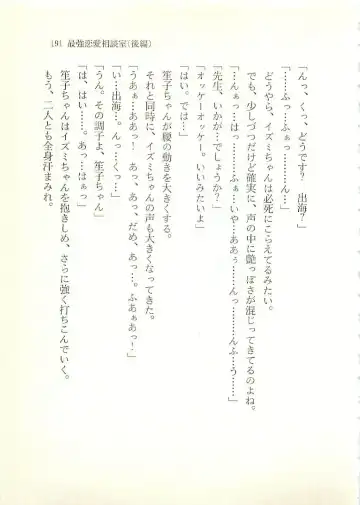 191 最強恋愛相談室(後編)
「んっ、くっ、どうです? 出海?」
「……ふっ……ふぁっ………ん……」
どうやら、イズミちゃんは必死にこらえてるみたい。
でも、少しづつだけど確実に、声の中に艶っぽさが混じってきてるのよね。
「……んぁっ……はっ………ふぁ……いや…ああぅ……んっ………んふ…う……」
「先生、いかが…でしょうか?」
「オッケーオッケー。いいみたいよ」
「はい。では…」
笙子ちゃんが腰の動きを大きくする。
それと同時に、イズミちゃんの声も大きくなってきた。
「うあぁ…ああっ! あっ、あっ、だめ、あっ…。ふあぁあっ!」
「い…出海…。んっ…くっ…」
「うん。その調子よ、笙子ちゃん」
「は、はい……。あっ…はぁっ」
笙子ちゃんはイズミちゃんを抱きしめ、さらに強く打ちこんでいく。
もう、二人とも全身汗まみれ。